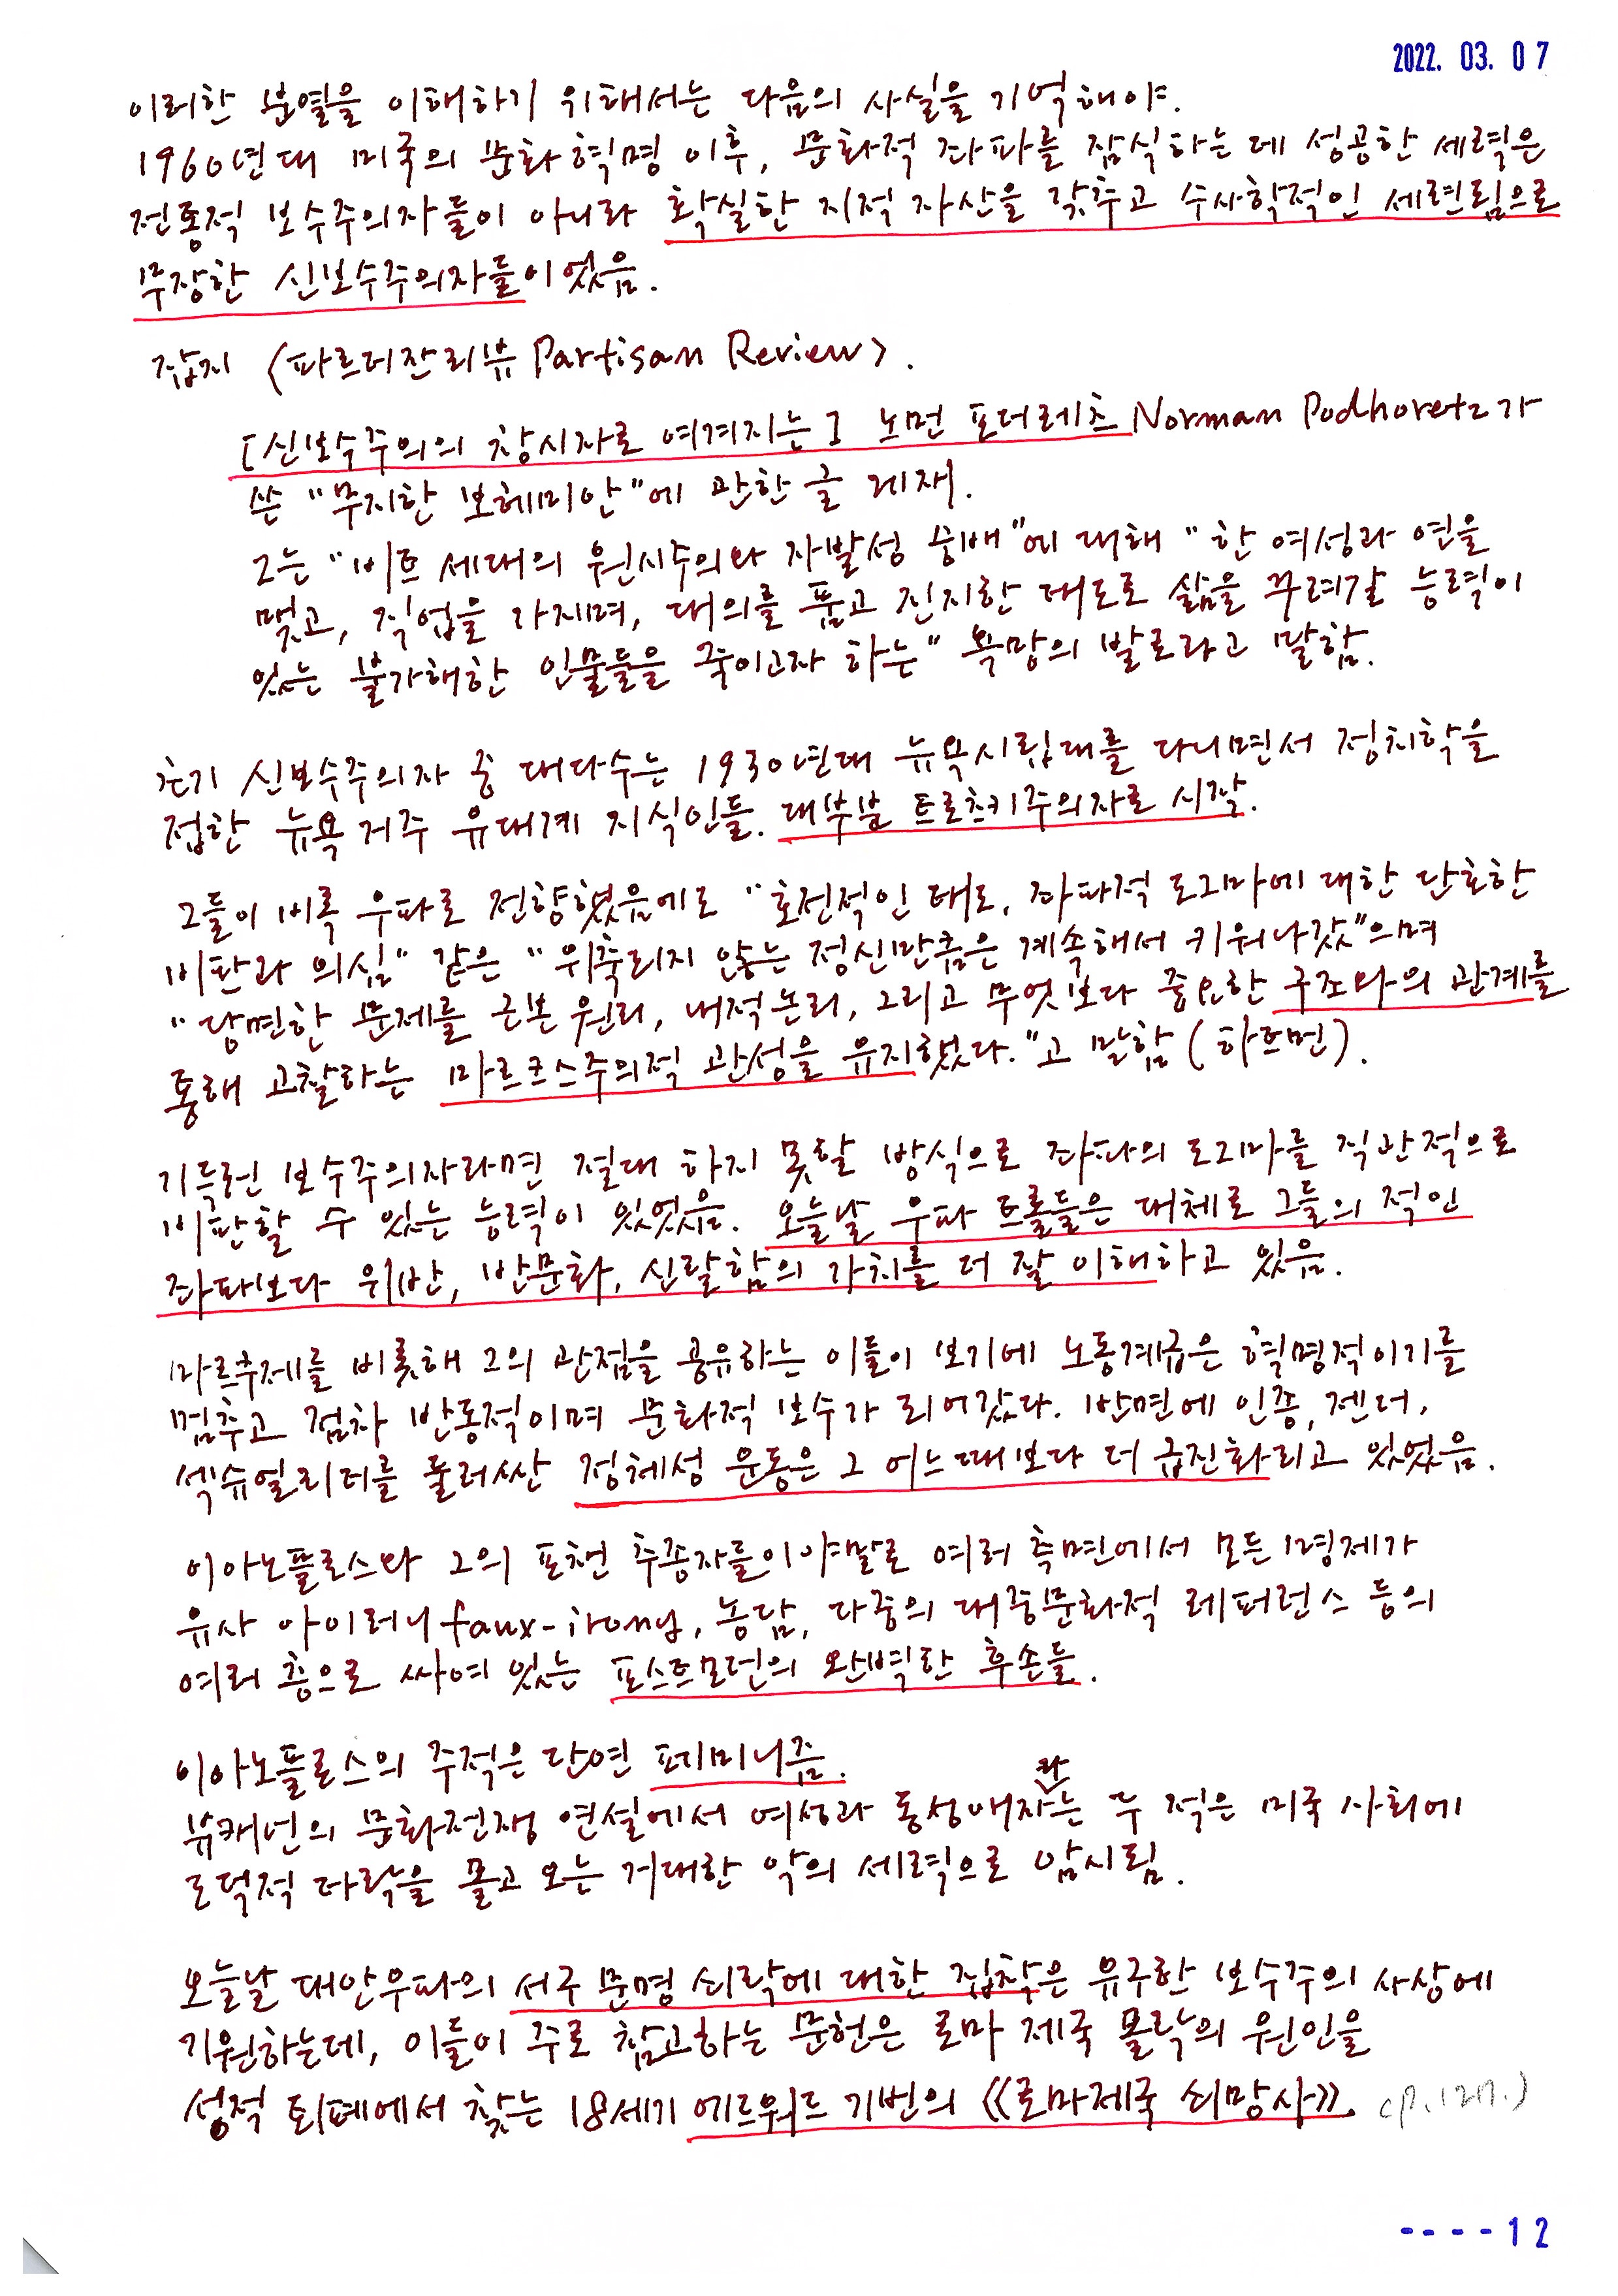 2022. 03. 07
이러한 분열을 이해하기 위해서는 다음의 사실을 기억해야.
1960년대 미국의 문화혁명 이후, 문화적 좌파를 잠식하는 데 성공한 세력은
전통적 보수주의자들이 아니라 확실한 지적 자산을 갖추고 수사학적인 세련됨으로
무장한 신보수주의자들이었음.
잡지 〈파르티잔리뷰 Partisan Review〉.
[신보수주의의 창시자로 여겨지는] 노먼 포더레츠 Norman Podhoretz가
쓴 "무지한 보헤미안"에 관한 글 게재.
그는 "비트 세대의 원시주의와 자발성 숭배"에 대해 "한 여성과 연을
맺고, 직업을 가지며, 대의를 품고 진지한 태도로 삶을 꾸려갈 능력이
있는 불가해한 인물들을 죽이고자 하는" 욕망의 발로라고 말함.
초기 신보수주의자 중 대다수는 1930년대 뉴욕시립대를 다니면서 정치학을
접한 뉴욕 거주 유대계 지식인들. 대부분 트로츠키주의자로 시작.
그들이 비록 우파로 전향했음에도 "호전적인 태도, 좌파적 도그마에 대한 단호한
비판과 의심" 같은 "위축되지 않는 정신만큼은 계속해서 키워나갔"으며
"당면한 문제를 근본 원리, 내적논리, 그리고 무엇보다 중요한 구조와의 관계를
통해 고찰하는 마르크스주의적 관성을 유지했다."고 말함 (하트먼).
기득권 보수주의자라면 절대 하지 못할 방식으로 좌파의 도그마를 직관적으로
비판할 수 있는 능력이 있었음. 오늘날 우파 트롤들은 대체로 그들의 적인
좌파보다 위반, 반문화, 신랄함의 가치를 더 잘 이해하고 있음.
마르쿠제를 비롯해 그의 관점을 공유하는 이들이 보기에 노동계급은 혁명적이기를
멈추고 점차 반동적이며 문화적 보수가 되어갔다. 반면에 인종, 젠더,
섹슈얼리티를 둘러싼 정체성 운동은 그 어느때보다 더 급진화되고 있었음.
이아노플로스와 그의 포챈 추종자들이야말로 여러 측면에서 모든 명제가
유사 아이러니 faux-irony, 농담, 다중의 대중문화적 레퍼런스 등의
여러 층으로 싸여 있는 포스트모던의 완벽한 후손들.
이아노플로스의 주적은 단연 페미니즘.
뷰캐넌의 문화전쟁 연설에서 여성과 동성애자라는 두 적은 미국 사회에
도덕적 타락을 몰고 오는 거대한 악의 세력으로 암시됨.
오늘날 대안우파의 서구 문명 쇠락에 대한 집착은 유구한 보수주의 사상에
기원하는데, 이들이 주로 참고하는 문헌은 로마 제국 몰락의 원인을
성적 퇴폐에서 찾는 18세기 에드워드 기번의 《로마제국 쇠망사》. (p.127.)
----12